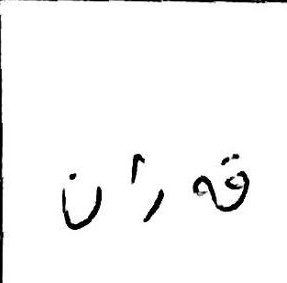 قهران